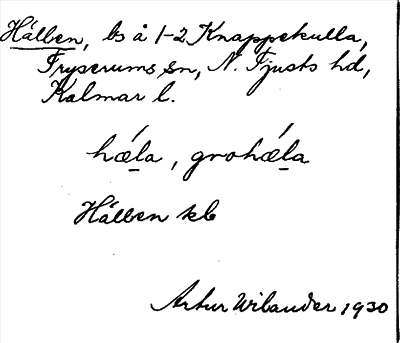 Hälben, bs å 1-2 Knappekulla,
Fryserums sn, N. Tjusts hd,
Kalmar l.
hǽla, grohǽla
Hälben skb
Artur Wilander 1930